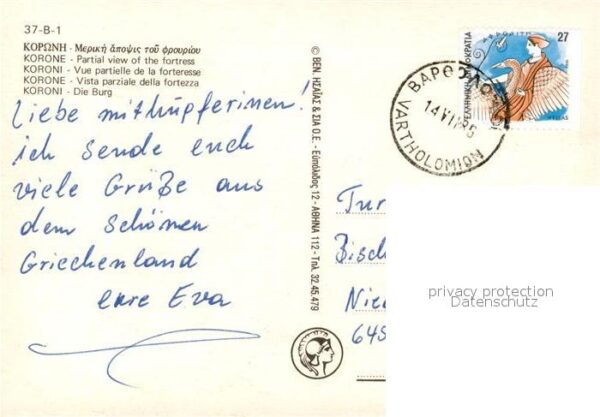 37-B-1
ΚΟΡΩΝΗ - Μερική ἄποψις τοῦ φρουρίου
KORONE - Partial view of the fortress
KORONI - Vue partielle de la forteresse
KORONE - Vista parziale della fortezza
KORONI - Die Burg
Liebe mithüpferinnen!
ich sende euch
viele Grüße aus
dem schönen
Griechenland
eure Eva
© ΒΕΝ. ΗΣΑΪΑΣ & ΣΙΑ Ο.Ε. - Εὐπόλιδος 12 - ΑΘΗΝΑ 112 - Τηλ. 32.45.479
ΑΦΡΟΔΙΤΗ
27
HELLAS
VARTHOLOMION
Tur
Bisch
Nied
645
privacy protection
Datenschutz